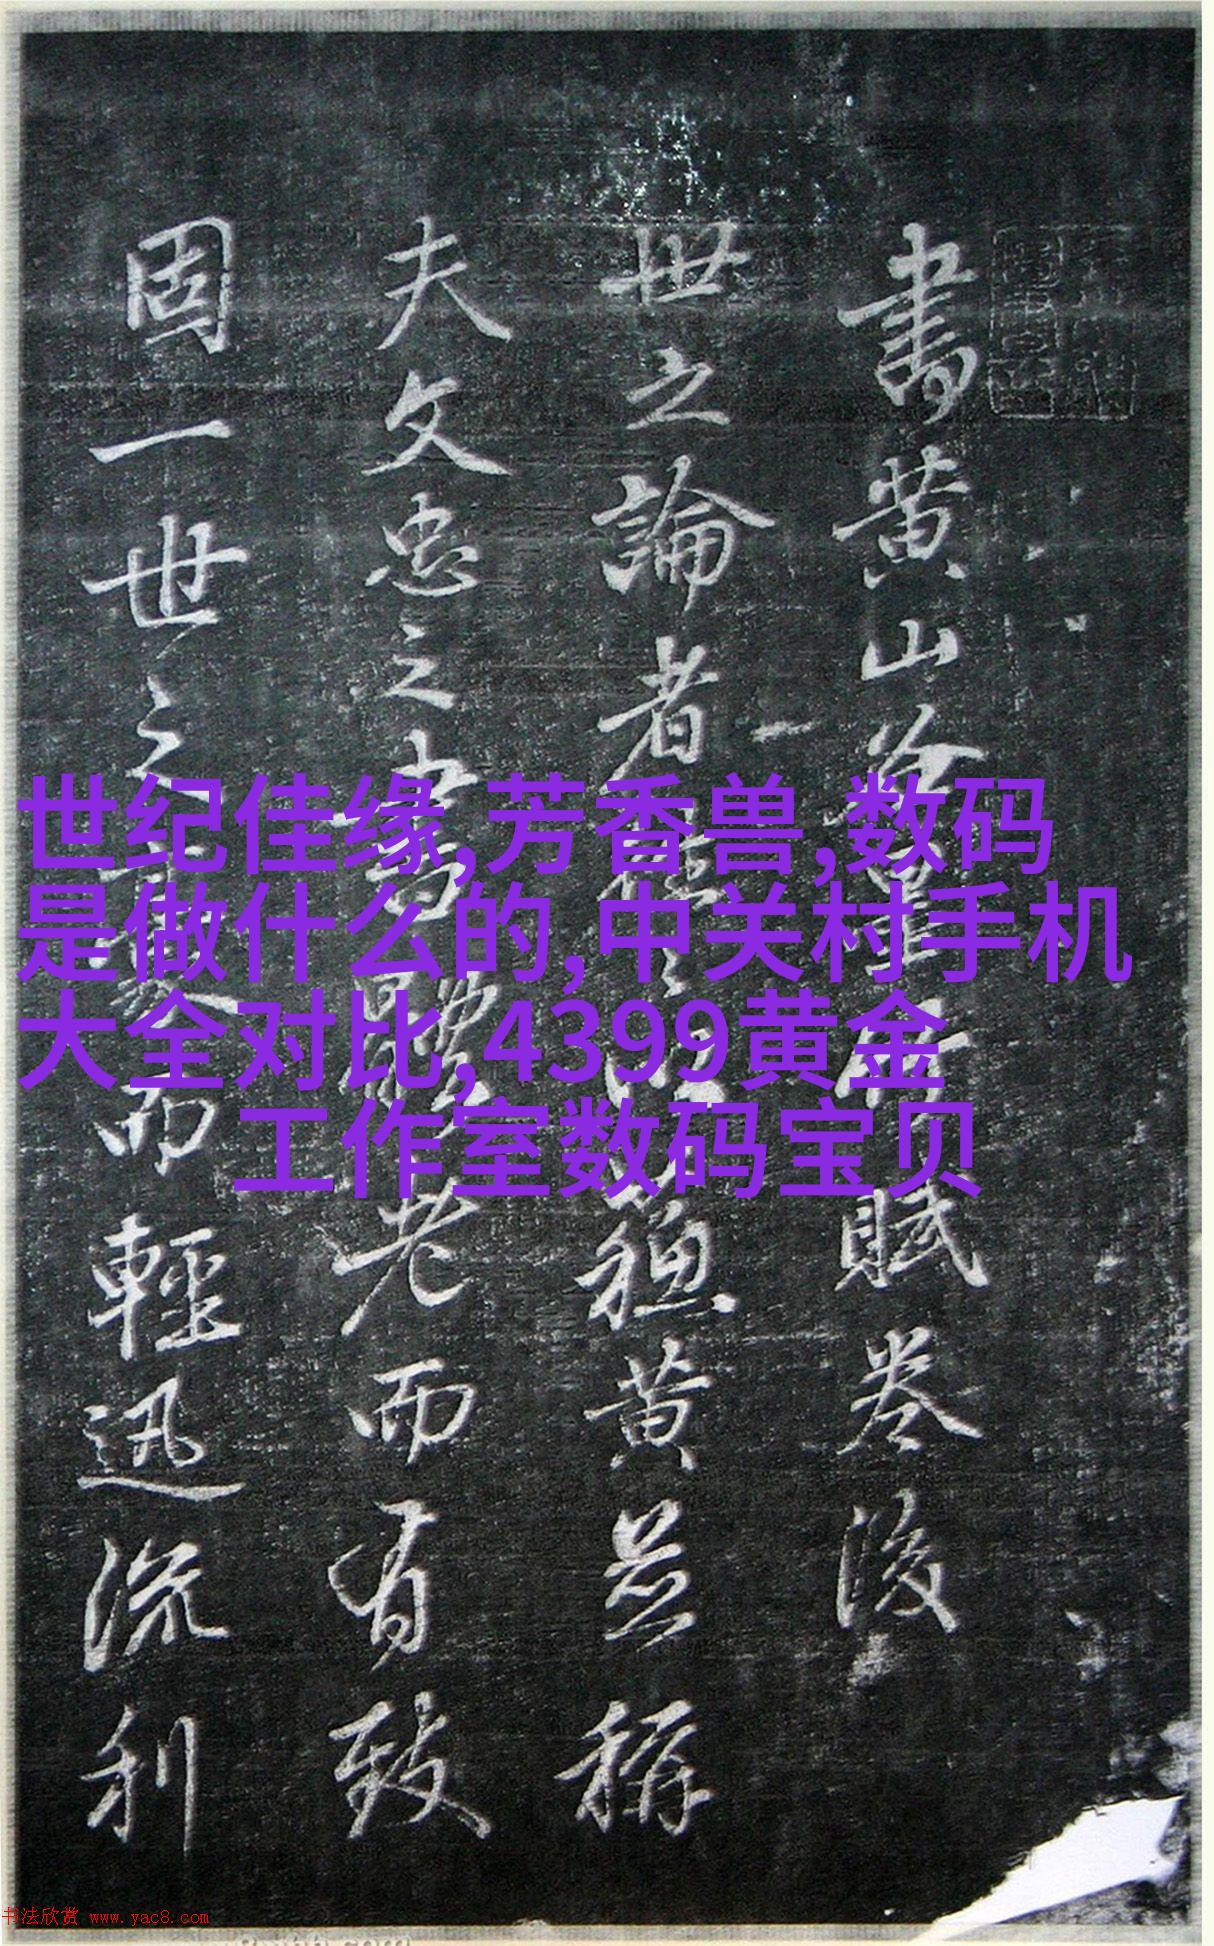 書黄山谷賦卷後
世之論者以蘓黄並稱
夫文忠之書體老而有致
固一世之而輕迅流利
世纪佳缘,芳香兽,数码
是做什么的,中关村手机
大全对比,4399黄金
工作室数码宝贝
书法欣赏 www.yac8.com